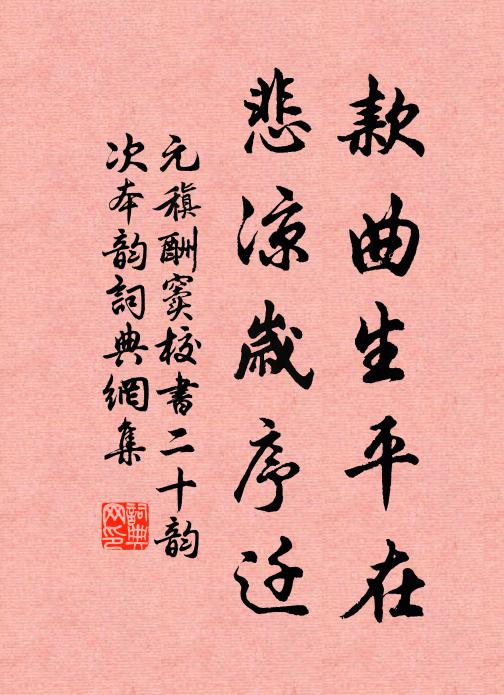 款曲生平在
悲凉歲序迁
元稹酬窦校書二十韵
次本韵詞典網集
詞典
网印